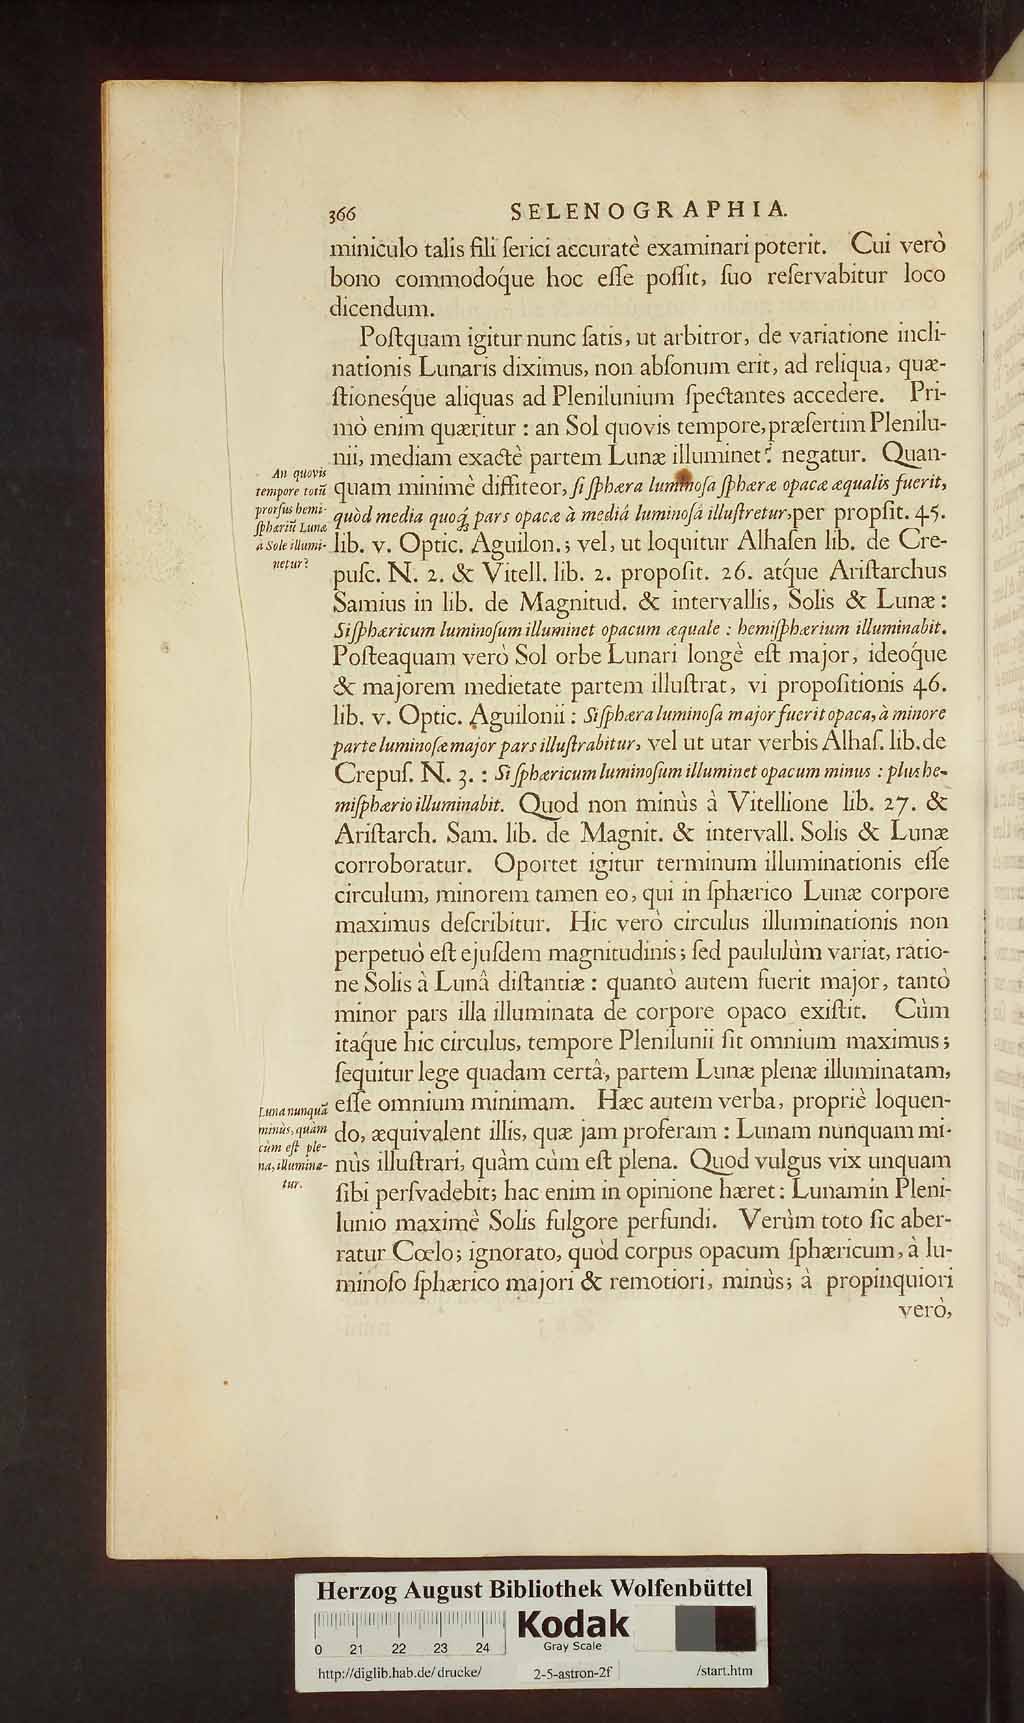 366 SELENOGRAPHIA.
miniculo talis fili ſerici accuratè examinari poterit. Cui verò
bono commodoq́ue hoc eſſe poſſit, ſuo reſervabitur loco
dicendum.
Poſtquam igitur nunc ſatis, ut arbitror, de variatione incli-
nationis Lunaris diximus, non abſonum erit, ad reliqua, quæ-
ſtionesq́ue aliquas ad Plenilunium ſpectantes accedere. Pri-
mò enim quæritur : an Sol quovis tempore, præſertim Plenilu-
nii, mediam exactè partem Lunæ illuminet? negatur. Quan-
An quovis
tempore totũ
prorſus hemi-
ſphæriũ Lunæ
a Sole illumi-
netur?
quam minimè diffiteor, ſi ſphæra luminoſa ſphæræ opacæ æqualis fuerit,
quòd media quoq́; pars opacæ à mediâ luminoſâ illuſtretur, per propſit. 45.
lib. v. Optic. Aguilon.; vel, ut loquitur Alhaſen lib. de Cre-
puſc. N. 2. & Vitell. lib. 2. propoſit. 26. atq́ue Ariſtarchus
Samius in lib. de Magnitud. & intervallis, Solis & Lunæ :
Si ſphæricum luminoſum illuminet opacum æquale : hemiſphærium illuminabit.
Poſteaquam verò Sol orbe Lunari longè eſt major, ideoq́ue
& majorem medietate partem illuſtrat, vi propoſitionis 46.
lib. v. Optic. Aguilonii : Si ſphæra luminoſa major fuerit opaca, à minore
parte luminoſæ major pars illuſtrabitur, vel ut utar verbis Alhaſ. lib. de
Crepuſ. N. 3. : Si ſphæricum luminoſum illuminet opacum minus : plus he-
miſphærio illuminabit. Quod non minùs à Vitellione lib. 27. &
Ariſtarch. Sam. lib. de Magnit. & intervall. Solis & Lunæ
corroboratur. Oportet igitur terminum illuminationis eſſe
circulum, minorem tamen eo, qui in ſphærico Lunæ corpore
maximus deſcribitur. Hic verò circulus illuminationis non
perpetuò eſt ejuſdem magnitudinis; ſed paululùm variat, ratio-
ne Solis à Lunâ diſtantiæ : quantò autem fuerit major, tantò
minor pars illa illuminata de corpore opaco exiſtit. Cùm
itaq́ue hic circulus, tempore Plenilunii ſit omnium maximus;
ſequitur lege quadam certâ, partem Lunæ plenæ illuminatam,
eſſe omnium minimam. Hæc autem verba, propriè loquen-
Luna nunquã
minùs, quàm
cùm eſt ple-
na, illumina-
tur.
do, æquivalent illis, quæ jam proferam : Lunam nunquam mi-
nùs illuſtrari, quàm cùm eſt plena. Quod vulgus vix unquam
ſibi perſvadebit; hac enim in opinione hæret : Lunam in Pleni-
lunio maximè Solis fulgore perfundi. Verùm toto ſic aber-
ratur Cœlo; ignorato, quòd corpus opacum ſphæricum, à lu-
minoſo ſphærico majori & remotiori, minùs; à propinquiori
verò,
Herzog August Bibliothek Wolfenbüttel
0 21 22 23 24
Kodak
Gray Scale
http://diglib.hab.de/drucke/ 2-5-astron-2f /start.htm